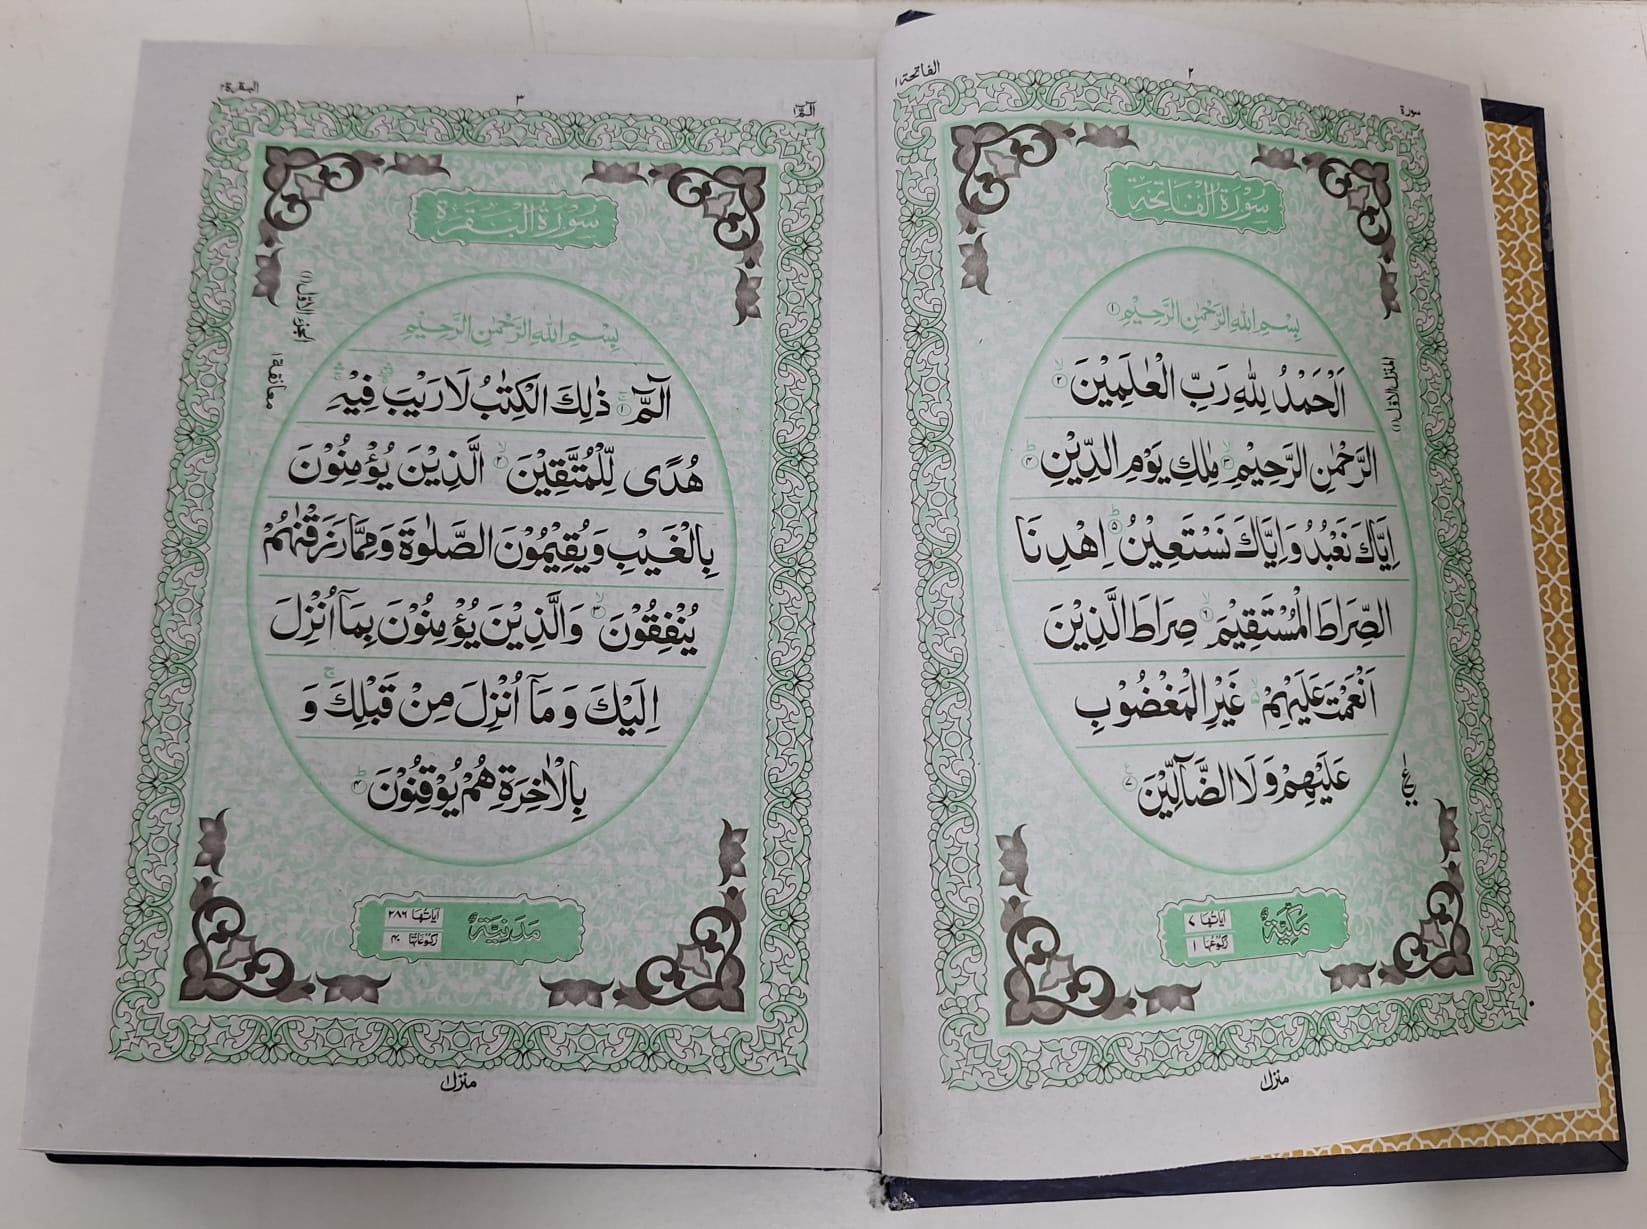 سورة
٢
الفاتحة ١
سُوْرَةُ الْفَاتِحَةِ
بِسْمِ اللهِ الرَّحْمٰنِ الرَّحِيْمِ ١
اَلْحَمْدُ لِلّٰهِ رَبِّ الْعٰلَمِيْنَ ٢
الرَّحْمٰنِ الرَّحِيْمِ ٣ مٰلِكِ يَوْمِ الدِّيْنِ ٤
اِيَّاكَ نَعْبُدُ وَاِيَّاكَ نَسْتَعِيْنُ ٥ اِهْدِنَا
الصِّرَاطَ الْمُسْتَقِيْمَ ٦ صِرَاطَ الَّذِيْنَ
اَنْعَمْتَ عَلَيْهِمْ غَيْرِ الْمَغْضُوْبِ
عَلَيْهِمْ وَلَا الضَّآلِّيْنَ ٧
المنزل الاول (١)
مَكِّيَّةٌ
اٰيَاتُهَا ٧
رُكُوْعُهَا ١
منزل ١
الٓمّٓ ١
٣
البقرة ٢
سُوْرَةُ الْبَقَرَةِ
بِسْمِ اللهِ الرَّحْمٰنِ الرَّحِيْمِ
الٓمّٓ ١ ذٰلِكَ الْكِتٰبُ لَا رَيْبَ فِيْهِ
هُدًى لِّلْمُتَّقِيْنَ ٢ الَّذِيْنَ يُؤْمِنُوْنَ
بِالْغَيْبِ وَيُقِيْمُوْنَ الصَّلٰوةَ وَمِمَّا رَزَقْنٰهُمْ
يُنْفِقُوْنَ ٣ وَالَّذِيْنَ يُؤْمِنُوْنَ بِمَآ اُنْزِلَ
اِلَيْكَ وَمَآ اُنْزِلَ مِنْ قَبْلِكَ ج وَ
بِالْاٰخِرَةِ هُمْ يُوْقِنُوْنَ ٤
الجزء الاول (١)
معانقة ١
مَدَنِيَّةٌ
اٰيَاتُهَا ٢٨٦
رُكُوْعَاتُهَا ٤٠
منزل ١